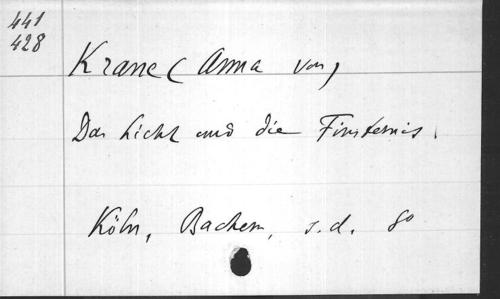 441
428
Krane (Anna von)
Das Licht und die Finsternis.
Köln, Bachem, s.d. 8o